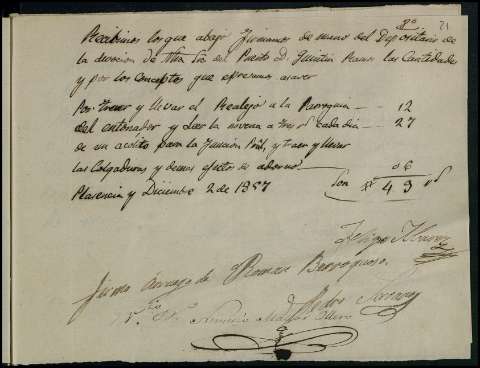 21
Recibimos los que abajo firmamos de mano del Depositario de
la devocion de Ntra Sra del Puerto D. Quintin Ramos las Cantidades
y por los conceptos que espresamos a saver
Por traer y llevar el Realejo a la Parroquia — 12
del entonador y leer la novena a tres rs cada dia — 27
de un acolito para la funcion Pral y traer y llevar
las Colgaduras y demas efectos de adorno — 06
Plasencia y Diciembre 2 de 1857 Son rs 45
Felipe
Firmo a ruego de Roman Berrocoso.
Pedro